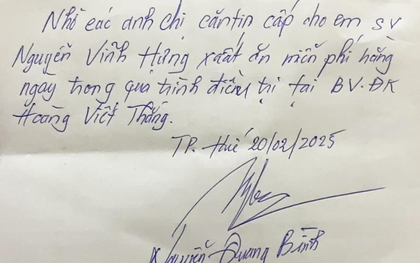 Nhờ các anh chị căntin cấp cho em SV
Nguyễn Vĩnh Hưng xuất ăn miễn phí hằng
ngay trong quá trình điều trị tại BV-ĐK
Hoàng Viết Thắng.
TP. Huế 20/02/2025
Nguyễn Quang Bình